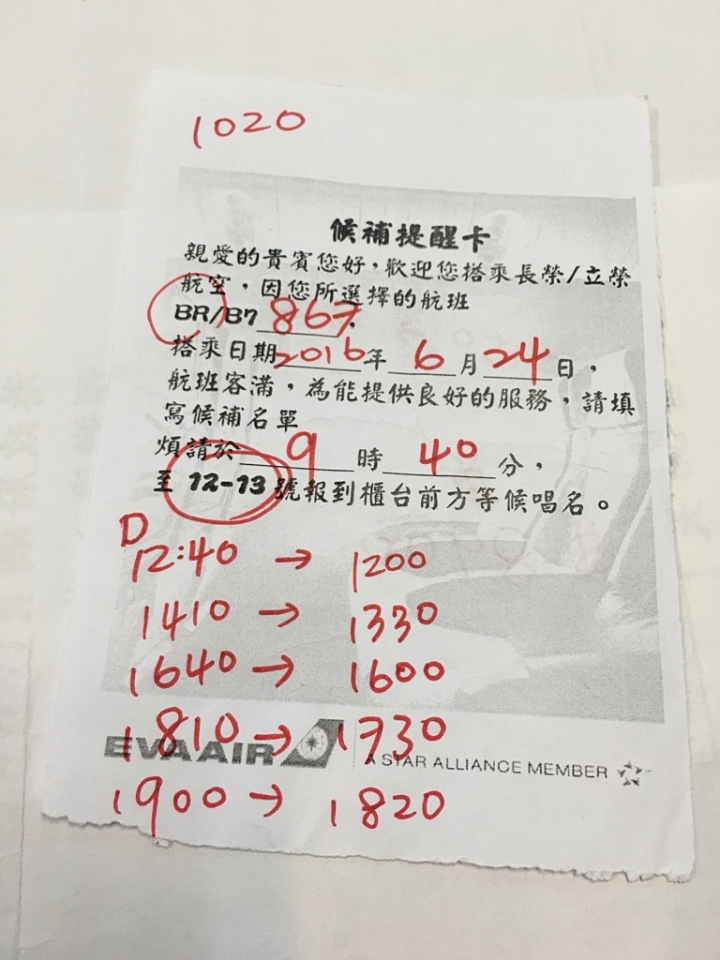 1020
候補提醒卡
親愛的貴賓您好，歡迎您搭乘長榮/立榮
航空，因您所選擇的航班
BR/B7 867，
搭乘日期2016年6月24日，
航班客滿，為能提供良好的服務，請填
寫候補名單
煩請於9時40分，
至 12-13 號報到櫃台前方等候唱名。
D
12:40 → 1200
1410 → 1330
1640 → 1600
1810 → 1730
EVA AIR A STAR ALLIANCE MEMBER
1900 → 1820